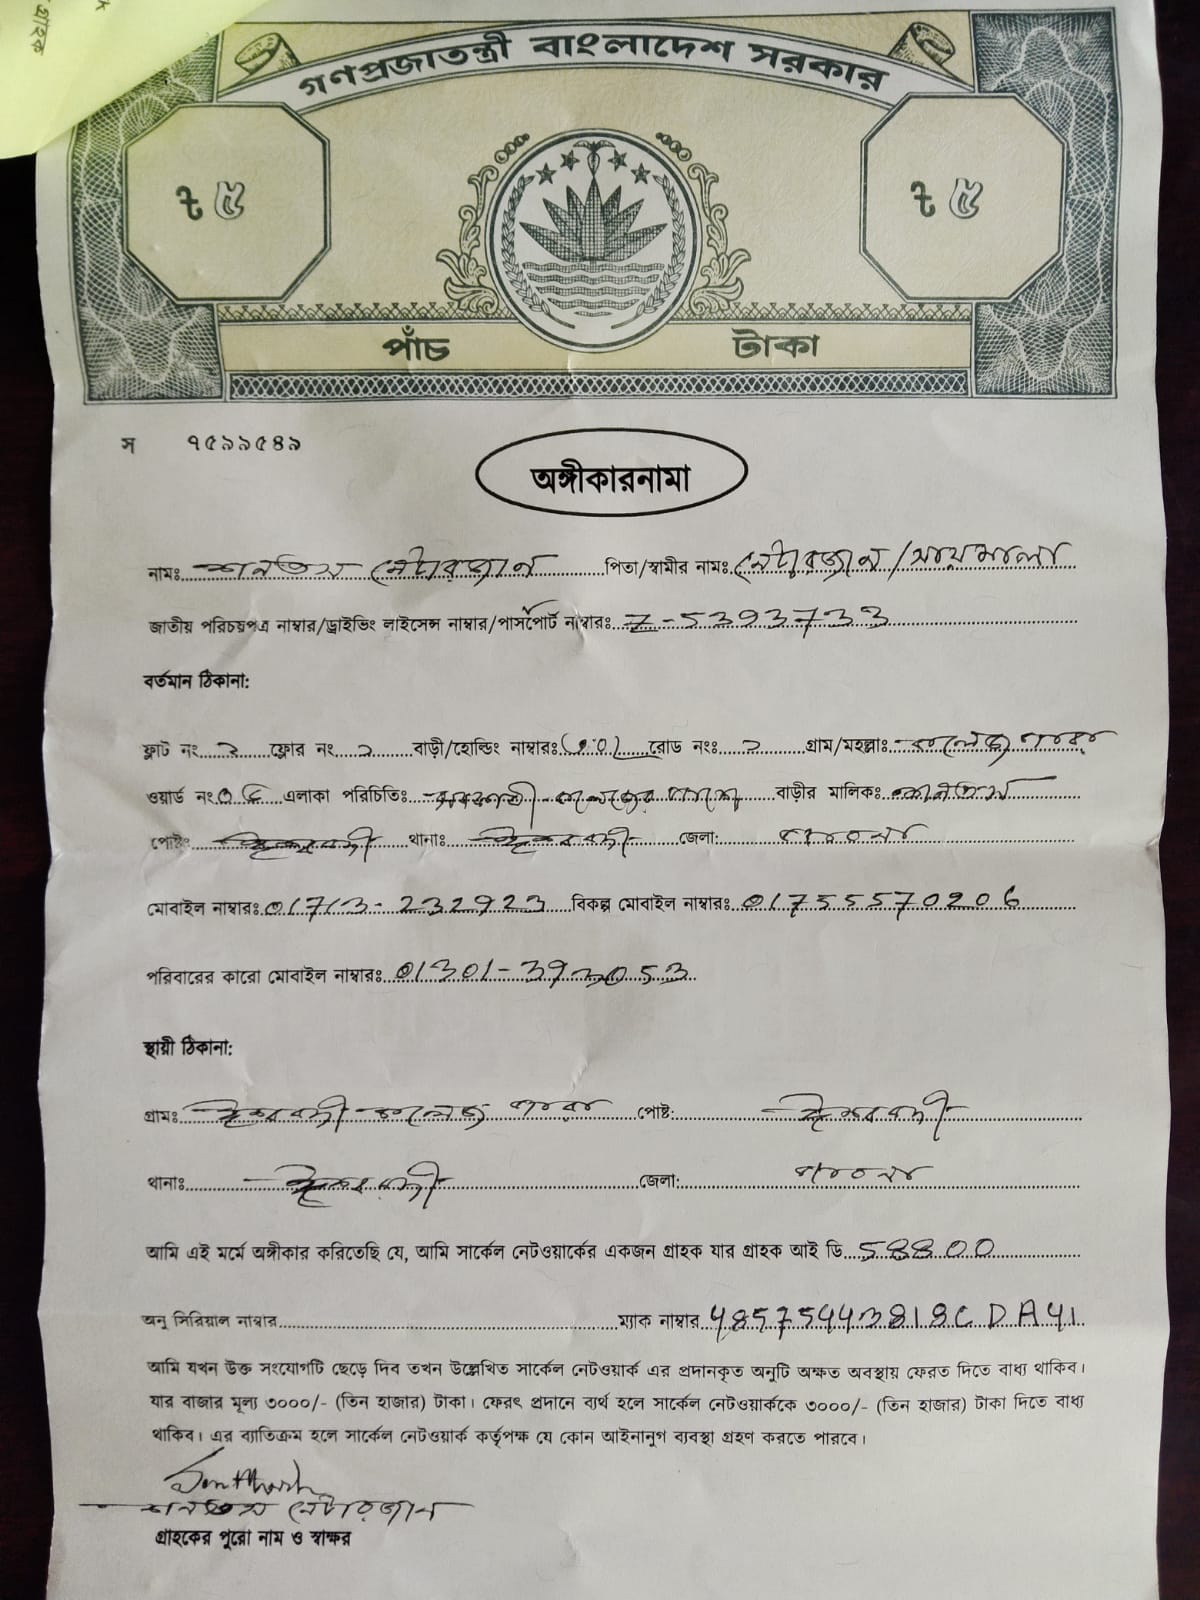 গ্রাহক
গণপ্রজাতন্ত্রী বাংলাদেশ সরকার
৳ ৫ ৳ ৫
পাঁচ টাকা
স ৭৫৯৯৫৪৯
অঙ্গীকারনামা
নামঃ পিতা/স্বামীর নামঃ
জাতীয় পরিচয়পত্র নাম্বার/ড্রাইভিং লাইসেন্স নাম্বার/পাসপোর্ট নাম্বারঃ 7-5393733
বর্তমান ঠিকানা:
ফ্লাট নং ২ ফ্লোর নং ২ বাড়ী/হোল্ডিং নাম্বারঃ রোড নংঃ ২ গ্রাম/মহল্লাঃ কলেজ পাড়া
ওয়ার্ড নং ০৫ এলাকা পরিচিতিঃ বাড়ীর মালিকঃ
পোষ্টঃ ঈশ্বরদী থানাঃ ঈশ্বরদী জেলা: পাবনা
মোবাইল নাম্বারঃ 01713-232923 বিকল্প মোবাইল নাম্বারঃ 01755570206
পরিবারের কারো মোবাইল নাম্বারঃ 01301-393053
স্থায়ী ঠিকানা:
গ্রামঃ ঈশ্বরদী কলেজ পাড়া পোষ্ট: ঈশ্বরদী
থানাঃ ঈশ্বরদী জেলা: পাবনা
আমি এই মর্মে অঙ্গীকার করিতেছি যে, আমি সার্কেল নেটওয়ার্কের একজন গ্রাহক যার গ্রাহক আই ডি 58800
অনু সিরিয়াল নাম্বার ম্যাক নাম্বার 48575443818CDA41
আমি যখন উক্ত সংযোগটি ছেড়ে দিব তখন উল্লেখিত সার্কেল নেটওয়ার্ক এর প্রদানকৃত অনুটি অক্ষত অবস্থায় ফেরত দিতে বাধ্য থাকিব।
যার বাজার মূল্য ৩০০০/- (তিন হাজার) টাকা। ফেরৎ প্রদানে ব্যর্থ হলে সার্কেল নেটওয়ার্ককে ৩০০০/- (তিন হাজার) টাকা দিতে বাধ্য
থাকিব। এর ব্যাতিক্রম হলে সার্কেল নেটওয়ার্ক কর্তৃপক্ষ যে কোন আইনানুগ ব্যবস্থা গ্রহণ করতে পারবে।
গ্রাহকের পুরো নাম ও স্বাক্ষর